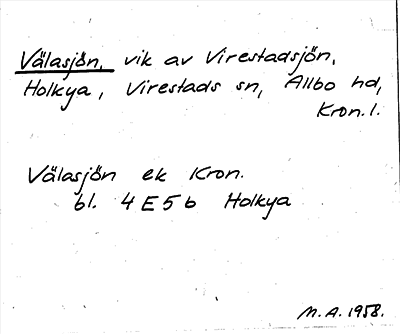 Välasjön, vik av Virestadsjön,
Holkya, Virestads sn, Allbo hd,
Kron.l.
Välasjön ek Kron.
bl. 4E5b Holkya
M.A. 1958.